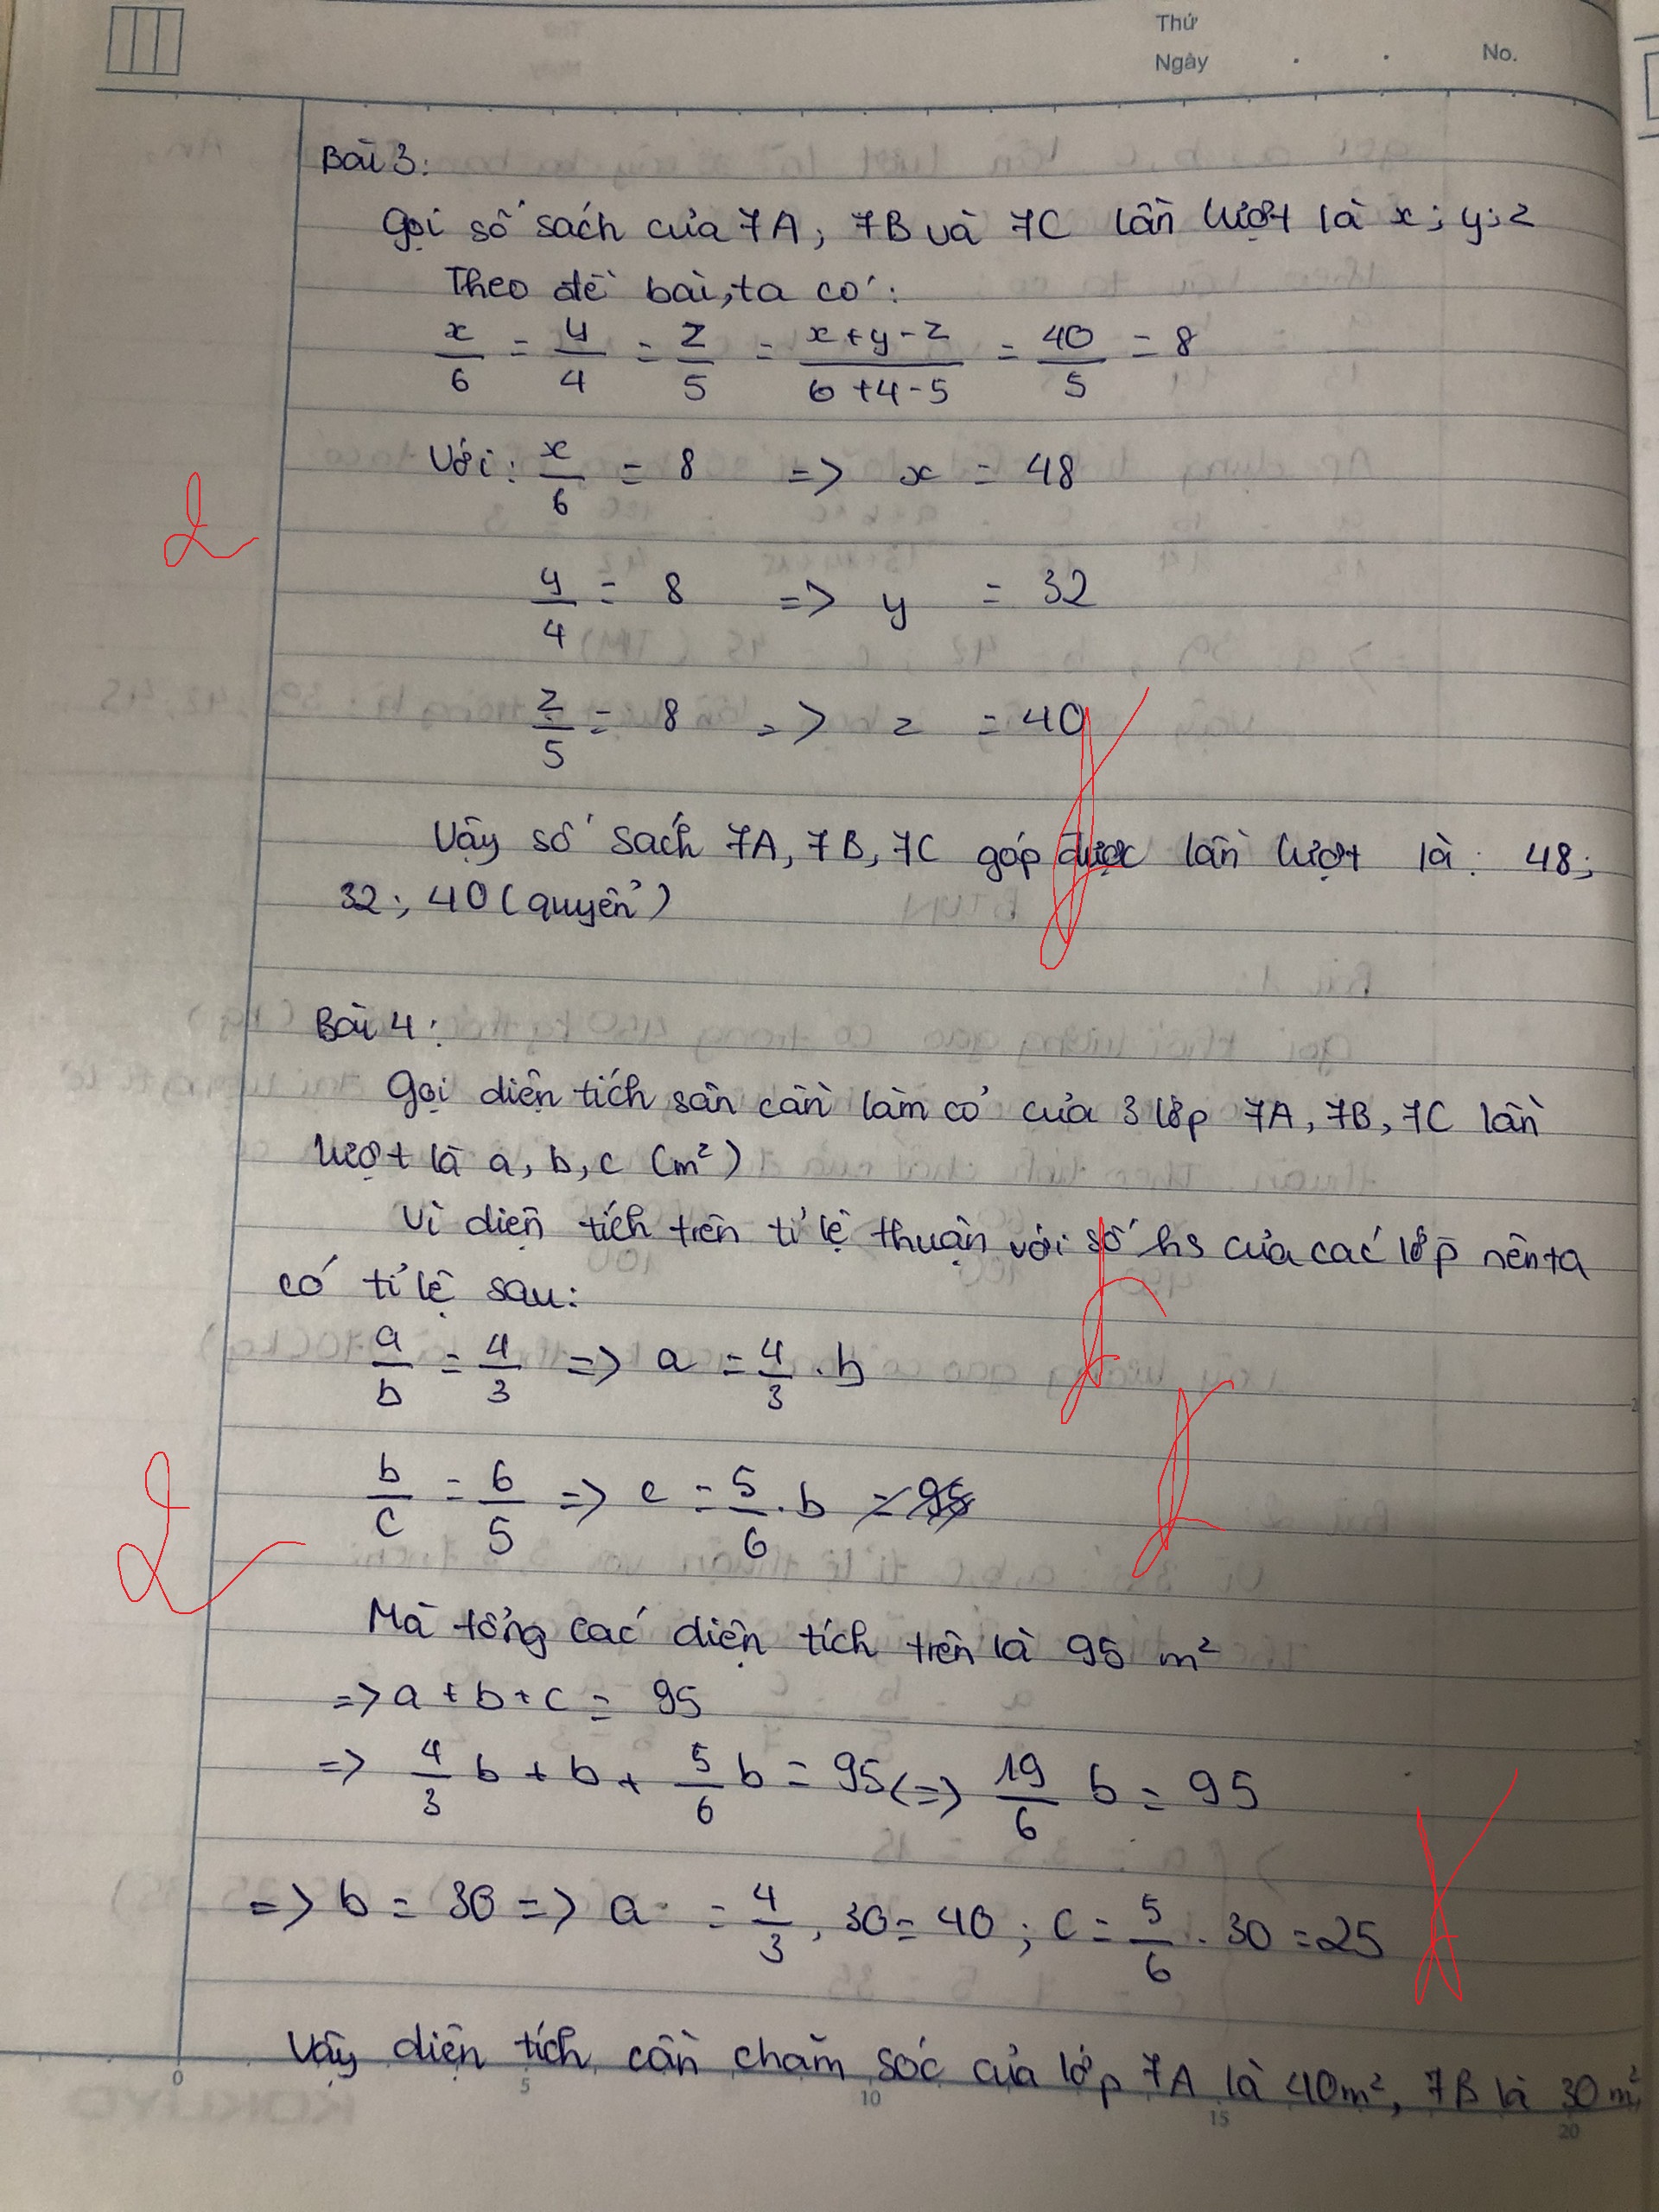 Thứ
Ngày . . No.
Bài 3:
Gọi số sách của 7A, 7B và 7C lần lượt là x; y; z
Theo đề bài, ta có:
x/6 = y/4 = z/5 = (x+y-z)/(6+4-5) = 40/5 = 8
Với: x/6 = 8 => x = 48
y/4 = 8 => y = 32
z/5 = 8 => z = 40
Vậy số sách 7A, 7B, 7C góp được lần lượt là: 48;
32; 40 (quyển)
Bài 4:
Gọi diện tích sân cần làm cỏ của 3 lớp 7A, 7B, 7C lần
lượt là a, b, c (m²)
Vì diện tích trên tỉ lệ thuận với số hs của các lớp nên ta
có tỉ lệ sau:
a/b = 4/3 => a = 4/3 . b
b/c = 6/5 => c = 5/6 . b = 95
Mà tổng các diện tích trên là 95 m²
=> a + b + c = 95
=> 4/3 b + b + 5/6 b = 95 <=> 19/6 b = 95
=> b = 30 => a = 4/3 . 30 = 40 ; c = 5/6 . 30 = 25
Vậy diện tích cần chăm sóc của lớp 7A là 40m², 7B là 30m²
0 5 10 15 20
KOKUYO